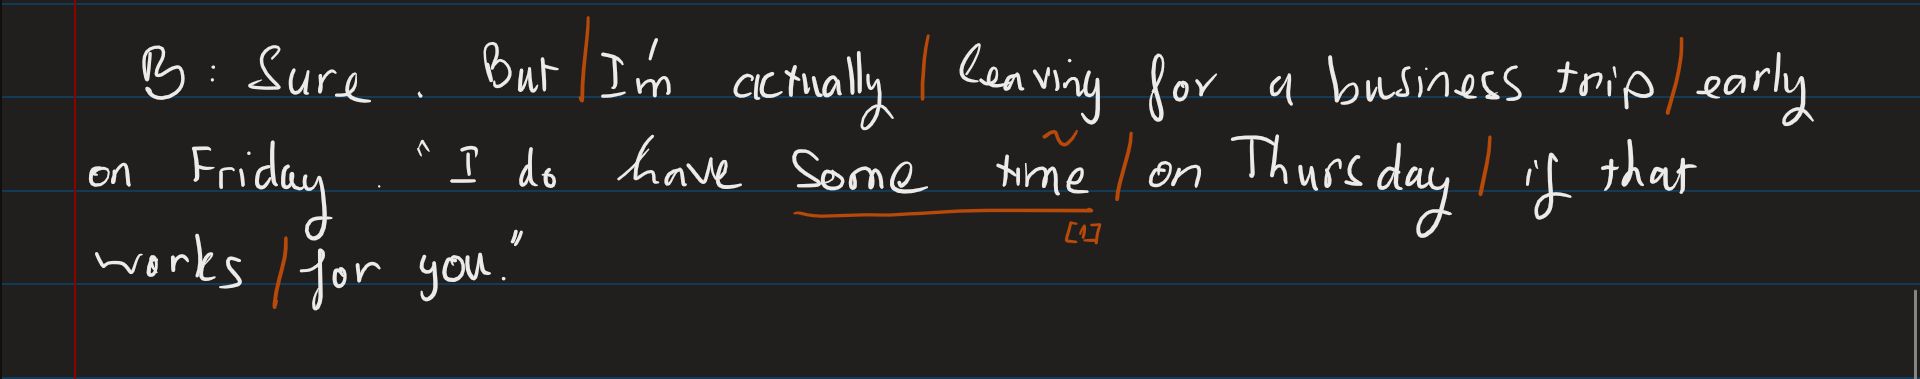 B: Sure. But / I'm actually / leaving for a business trip / early
on Friday. "I do have some time / on Thursday / if that
[1]
works / for you."